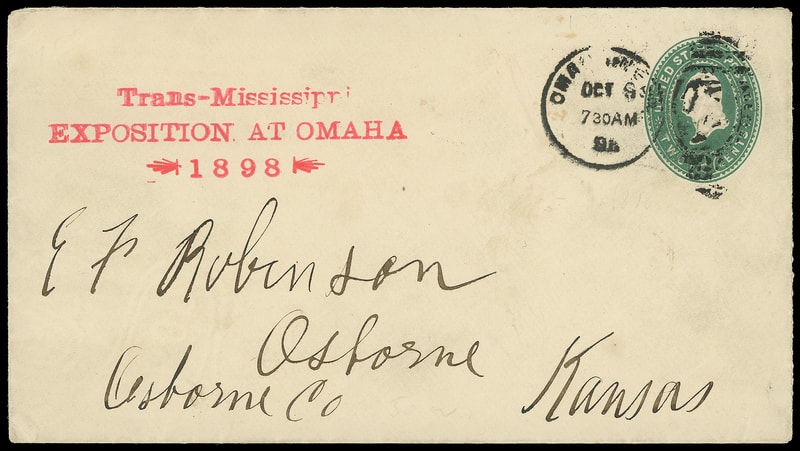 Trans-Mississippi
EXPOSITION AT OMAHA
1898
OCT 8
730AM
98
UNITED STA
CENTS
E F Robinson
Osborne
Osborne Co
Kansas